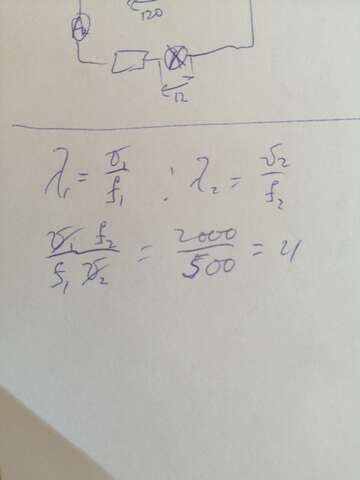 120
A
12
λ₁ = v₁/f₁ ; λ₂ = v₂/f₂
v₁ f₂ / f₁ v₂ = 2000/500 = 4